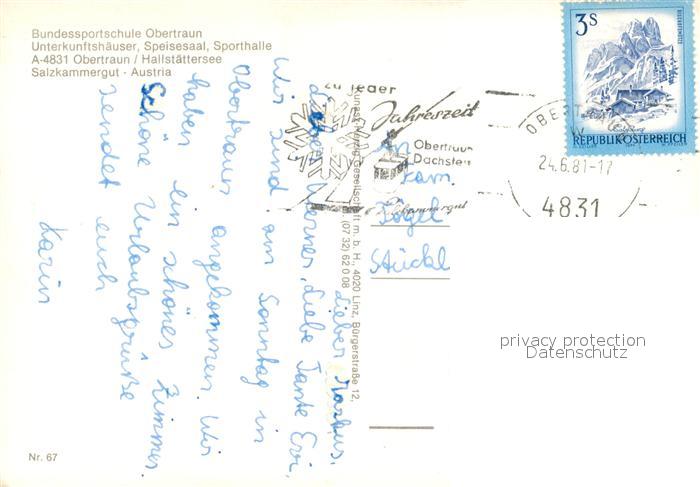 Bundessportschule Obertraun
Unterkunftshäuser, Speisesaal, Sporthalle
A-4831 Obertraun / Hallstättersee
Salzkammergut - Austria
Lieber Markus,
lieber Werner, liebe Tante Evi,
Wir sind am Sonntag in
Obertraun angekommen. Wir
haben ein schönes Zimmer.
Schöne Urlaubsgrüße
sendet euch
Karin
Nr. 67
Gesellschaft m. b. H., 4020 Linz, Bürgerstraße 12,
(07 32) 62 0 08
zu jeder
Jahreszeit
Obertraun
Dachstein
Salzkammergut
3S
REPUBLIK ÖSTERREICH
24.6.81-17
4831
An
Fam.
Stückl
privacy protection
Datenschutz